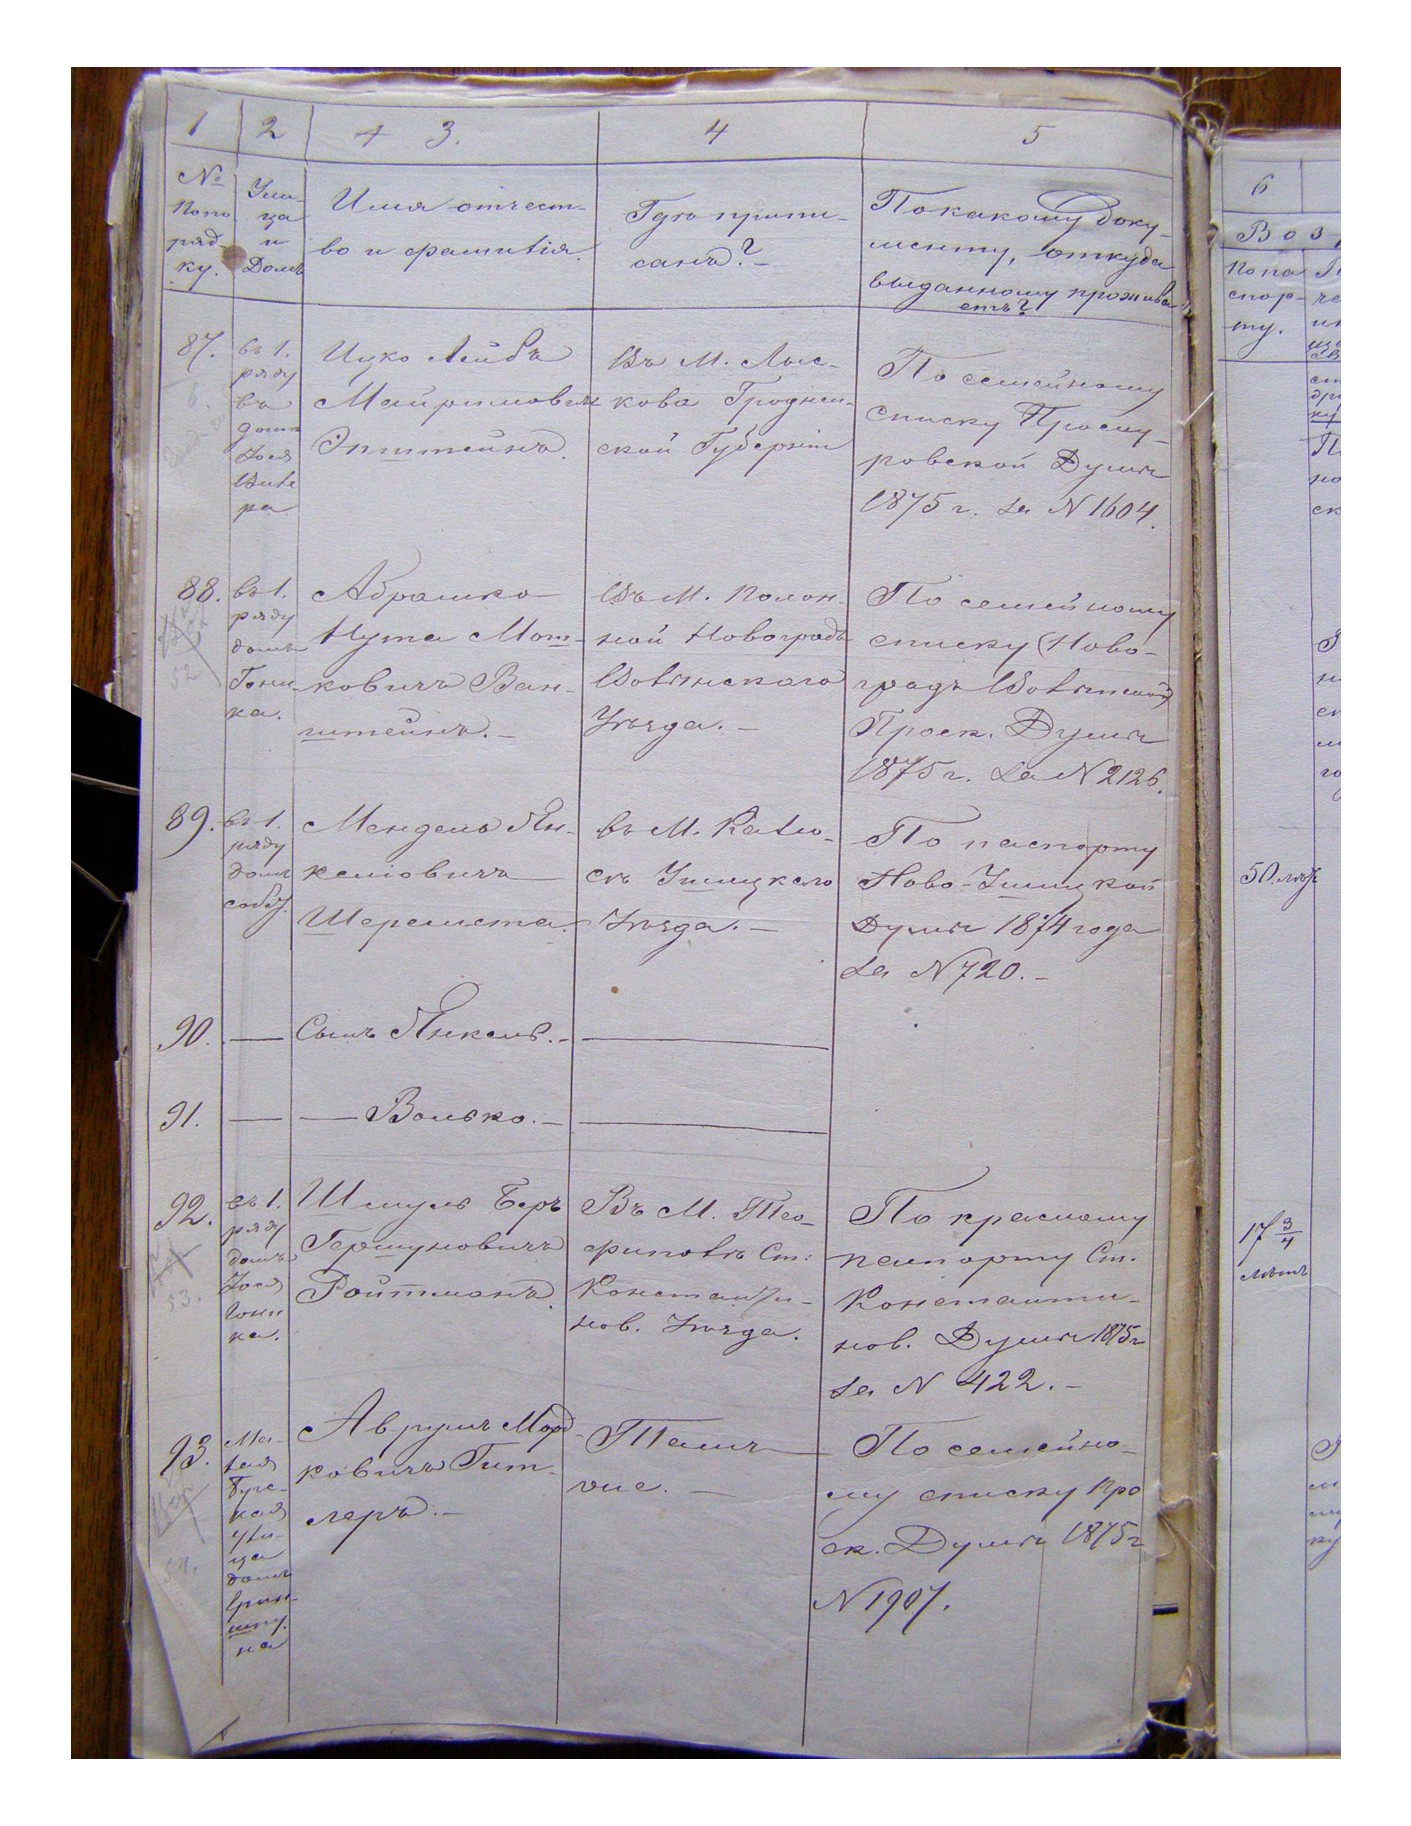 1 2 3. 4 5
№ попо ряд- ку.
Ули- ца и Домъ
Имя отчест-
во и фамилія.
Гдѣ припи-
санъ? —
По какому доку-
менту, откуда
выданному прожива
етъ?
6
Воз
По па
спор-
ту.
87.
въ 1.
ряду
въ
домѣ
Іося
Виле
ра
Ицко Лейбъ
Майримовичъ
Эпштейнъ.
Въ М. Лыс-
кова Гроднен-
ской Губерніи
По семейному
списку Проску-
ровской Думы
1875 г. за N 1604.
88.
52
въ 1.
ряду
домъ
Гони-
ка.
Абрашко
Нута Мот-
ковичъ Ван-
штейнъ. —
Въ М. Полон-
ной Новоградъ
Волынскаго
Уѣзда. —
По семейному
списку (Ново-
градъ Волынской)
Проск. Думы
1875 г. за N 2126.
89.
въ 1.
ряду
домъ
собст.
Мендель Ян-
келіовичъ
Шеремета.
въ М. Калю-
съ Ушицкаго
Уѣзда. —
По паспорту
Ново-Ушицкой
Думы 1874 года
за N 720. —
50. лѣтъ
90. — Сынъ Янкель. —
91. — — Волько. —
92.
53.
въ 1.
ряду
домъ
Іося
Гони
ка.
Шмуль Беръ
Гершуновичъ
Ройтманъ.
Въ М. Тео-
фиполѣ Ст:
Константи-
нов. Уѣзда.
По красному
паспорту Ст.
Константи-
нов. Думы 1875 г
за N 422. —
17 3/4
лѣтъ
93.
54.
Ма-
лая
Буге-
кая
ули-
ца
домъ
Грин-
шпу.
на
Аврумъ Морд-
ковичъ Гит-
леръ. —
Тамъ
же. —
По семейно-
му списку Про
ск. Думы 1875 г
N 1907.